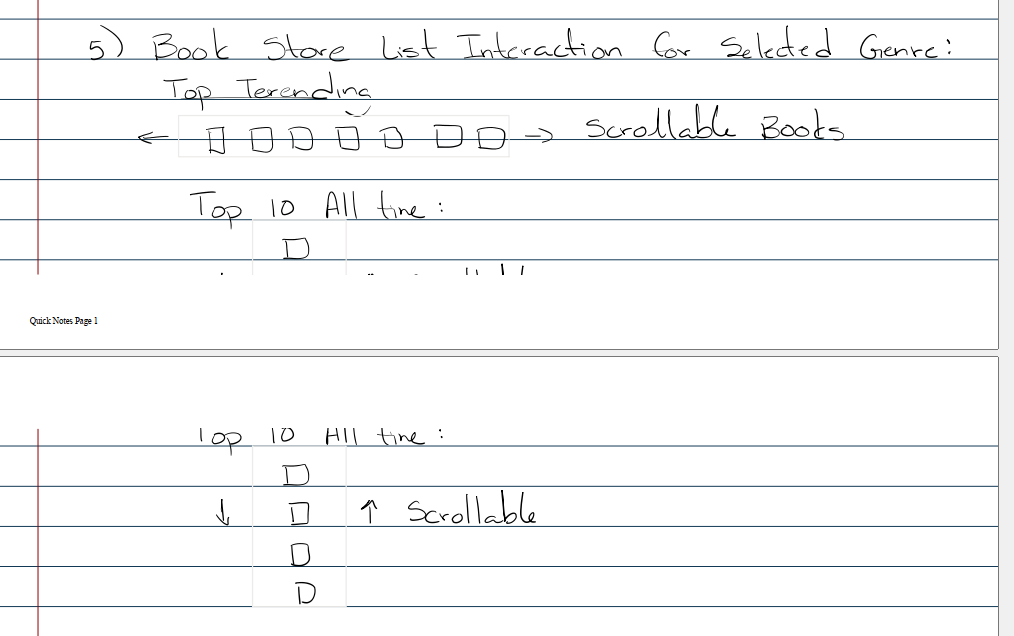 5) Book Store List Interaction for Selected Genre:
Top Terending
← → Scrollable Books
Top 10 All time:
Quick Notes Page 1
Top 10 All time:
↓ ↑ Scrollable